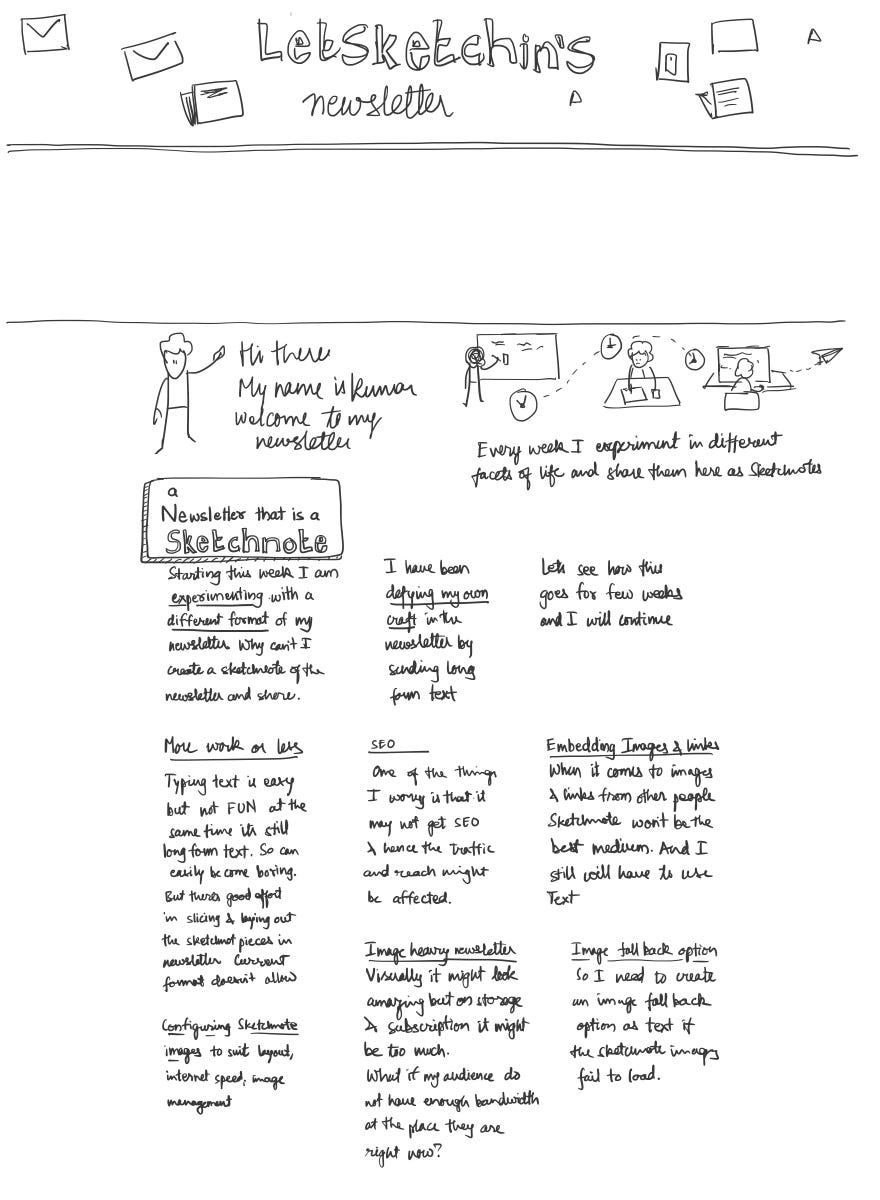 LetSketchin's
newsletter
Hi there
My name is Kumar
welcome to my
newsletter
Every week I experiment in different
facets of life and share them here as Sketchnotes
a
Newsletter that is a
Sketchnote
Starting this week I am
experimenting with a
different format of my
newsletter. Why can't I
create a sketchnote of the
newsletter and share.
I have been
defying my own
craft in the
newsletter by
sending long
form text
Lets see how this
goes for few weeks
and I will continue
More work or less
Typing text is easy
but not FUN at the
same time its still
long form text. So can
easily become boring.
But theres good effort
in slicing & laying out
the sketchnot pieces in
newsletter Current
format doesn't allow
Configuring Sketchnote
images to suit layout,
internet speed, image
management
SEO
One of the things
I worry is that it
may not get SEO
& hence the traffic
and reach might
be affected.
Embedding Images & links
When it comes to images
& links from other people
Sketchnote won't be the
best medium. And I
still will have to use
Text
Image heavy newsletter
Visually it might look
amazing but on storage
& subscription it might
be too much.
What if my audience do
not have enough bandwidth
at the place they are
right now?
Image fall back option
So I need to create
an image fall back
option as text if
the sketchnote images
fail to load.